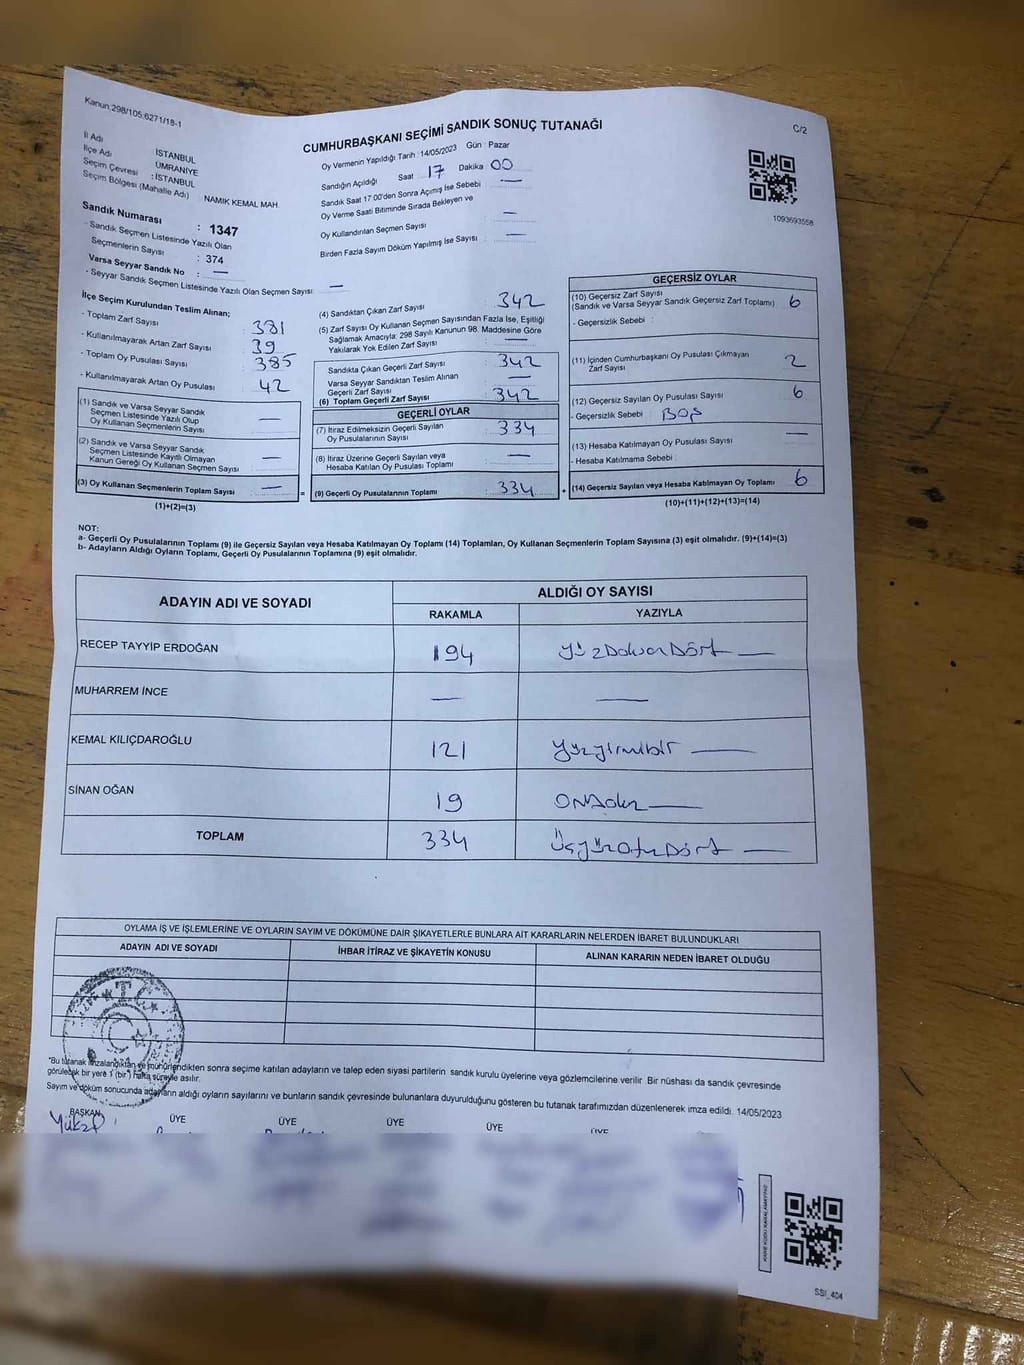 Kanun:298/105,6271/18-1
C/2
CUMHURBAŞKANI SEÇİMİ SANDIK SONUÇ TUTANAĞI
İl Adı
İSTANBUL
İlçe Adı
ÜMRANİYE
Seçim Çevresi : İSTANBUL
Seçim Bölgesi (Mahalle Adı) NAMIK KEMAL MAH.
Sandık Numarası : 1347
- Sandık Seçmen Listesinde Yazılı Olan
Seçmenlerin Sayısı : 374
Varsa Seyyar Sandık No : —
- Seyyar Sandık Seçmen Listesinde Yazılı Olan Seçmen Sayısı: —
Oy Vermenin Yapıldığı Tarih : 14/05/2023 Gün : Pazar
Sandığın Açıldığı Saat 17 Dakika 00
Sandık Saat 17:00'den Sonra Açımış İse Sebebi —
Oy Verme Saati Bitiminde Sırada Bekleyen ve
Oy Kullandırılan Seçmen Sayısı : —
Birden Fazla Sayım Döküm Yapılmış İse Sayısı : —
1093693558
İlçe Seçim Kurulundan Teslim Alınan;
- Toplam Zarf Sayısı : 381
- Kullanılmayarak Artan Zarf Sayısı : 39
- Toplam Oy Pusulası Sayısı : 385
- Kullanılmayarak Artan Oy Pusulası : 42
(1) Sandık ve Varsa Seyyar Sandık
Seçmen Listesinde Yazılı Olup
Oy Kullanan Seçmenlerin Sayısı : —
(2) Sandık ve Varsa Seyyar Sandık
Seçmen Listesinde Kayıtlı Olmayan
Kanun Gereği Oy Kullanan Seçmen Sayısı : —
(3) Oy Kullanan Seçmenlerin Toplam Sayısı : —
(1)+(2)=(3)
(4) Sandıktan Çıkan Zarf Sayısı : 342
(5) Zarf Sayısı Oy Kullanan Seçmen Sayısından Fazla İse, Eşitliği
Sağlamak Amacıyla; 298 Sayılı Kanunun 98. Maddesine Göre
Yakılarak Yok Edilen Zarf Sayısı : —
Sandıkta Çıkan Geçerli Zarf Sayısı : 342
Varsa Seyyar Sandıktan Teslim Alınan
Geçerli Zarf Sayısı : —
(6) Toplam Geçerli Zarf Sayısı : 342
GEÇERLİ OYLAR
(7) İtiraz Edilmeksizin Geçerli Sayılan
Oy Pusulalarının Sayısı : 334
(8) İtiraz Üzerine Geçerli Sayılan veya
Hesaba Katılan Oy Pusulası Toplamı : —
= (9) Geçerli Oy Pusulalarının Toplamı : 334
GEÇERSİZ OYLAR
(10) Geçersiz Zarf Sayısı
(Sandık ve Varsa Seyyar Sandık Geçersiz Zarf Toplamı) : 6
- Geçersizlik Sebebi :
(11) İçinden Cumhurbaşkanı Oy Pusulası Çıkmayan
Zarf Sayısı : 2
(12) Geçersiz Sayılan Oy Pusulası Sayısı : 6
- Geçersizlik Sebebi : BOŞ
(13) Hesaba Katılmayan Oy Pusulası Sayısı : —
- Hesaba Katılmama Sebebi :
+ (14) Geçersiz Sayılan veya Hesaba Katılmayan Oy Toplamı : 6
(10)+(11)+(12)+(13)=(14)
NOT:
a- Geçerli Oy Pusulalarının Toplamı (9) ile Geçersiz Sayılan veya Hesaba Katılmayan Oy Toplamı (14) Toplamları, Oy Kullanan Seçmenlerin Toplam Sayısına (3) eşit olmalıdır. (9)+(14)=(3)
b- Adayların Aldığı Oyların Toplamı, Geçerli Oy Pusulalarının Toplamına (9) eşit olmalıdır.
ADAYIN ADI VE SOYADI
ALDIĞI OY SAYISI
RAKAMLA YAZIYLA
RECEP TAYYİP ERDOĞAN 194 yüzDoksanDört —
MUHARREM İNCE — —
KEMAL KILIÇDAROĞLU 121 yüzyirmibir —
SİNAN OĞAN 19 ONDokuz —
TOPLAM 334 üçyüzOtuzDört —
OYLAMA İŞ VE İŞLEMLERİNE VE OYLARIN SAYIM VE DÖKÜMÜNE DAİR ŞİKAYETLERLE BUNLARA AİT KARARLARIN NELERDEN İBARET BULUNDUKLARI
ADAYIN ADI VE SOYADI İHBAR İTİRAZ VE ŞİKAYETİN KONUSU ALINAN KARARIN NEDEN İBARET OLDUĞU
*Bu tutanak imzalandıktan ve mühürlendikten sonra seçime katılan adayların ve talep eden siyasi partilerin sandık kurulu üyelerine veya gözlemcilerine verilir. Bir nüshası da sandık çevresinde
görülecek bir yere 1 (bir) hafta süreyle asılır.
Sayım ve döküm sonucunda adayların aldığı oyların sayılarını ve bunların sandık çevresinde bulunanlara duyurulduğunu gösteren bu tutanak tarafımızdan düzenlenerek imza edildi. 14/05/2023
BAŞKAN ÜYE ÜYE ÜYE ÜYE ÜYE
SSI_404